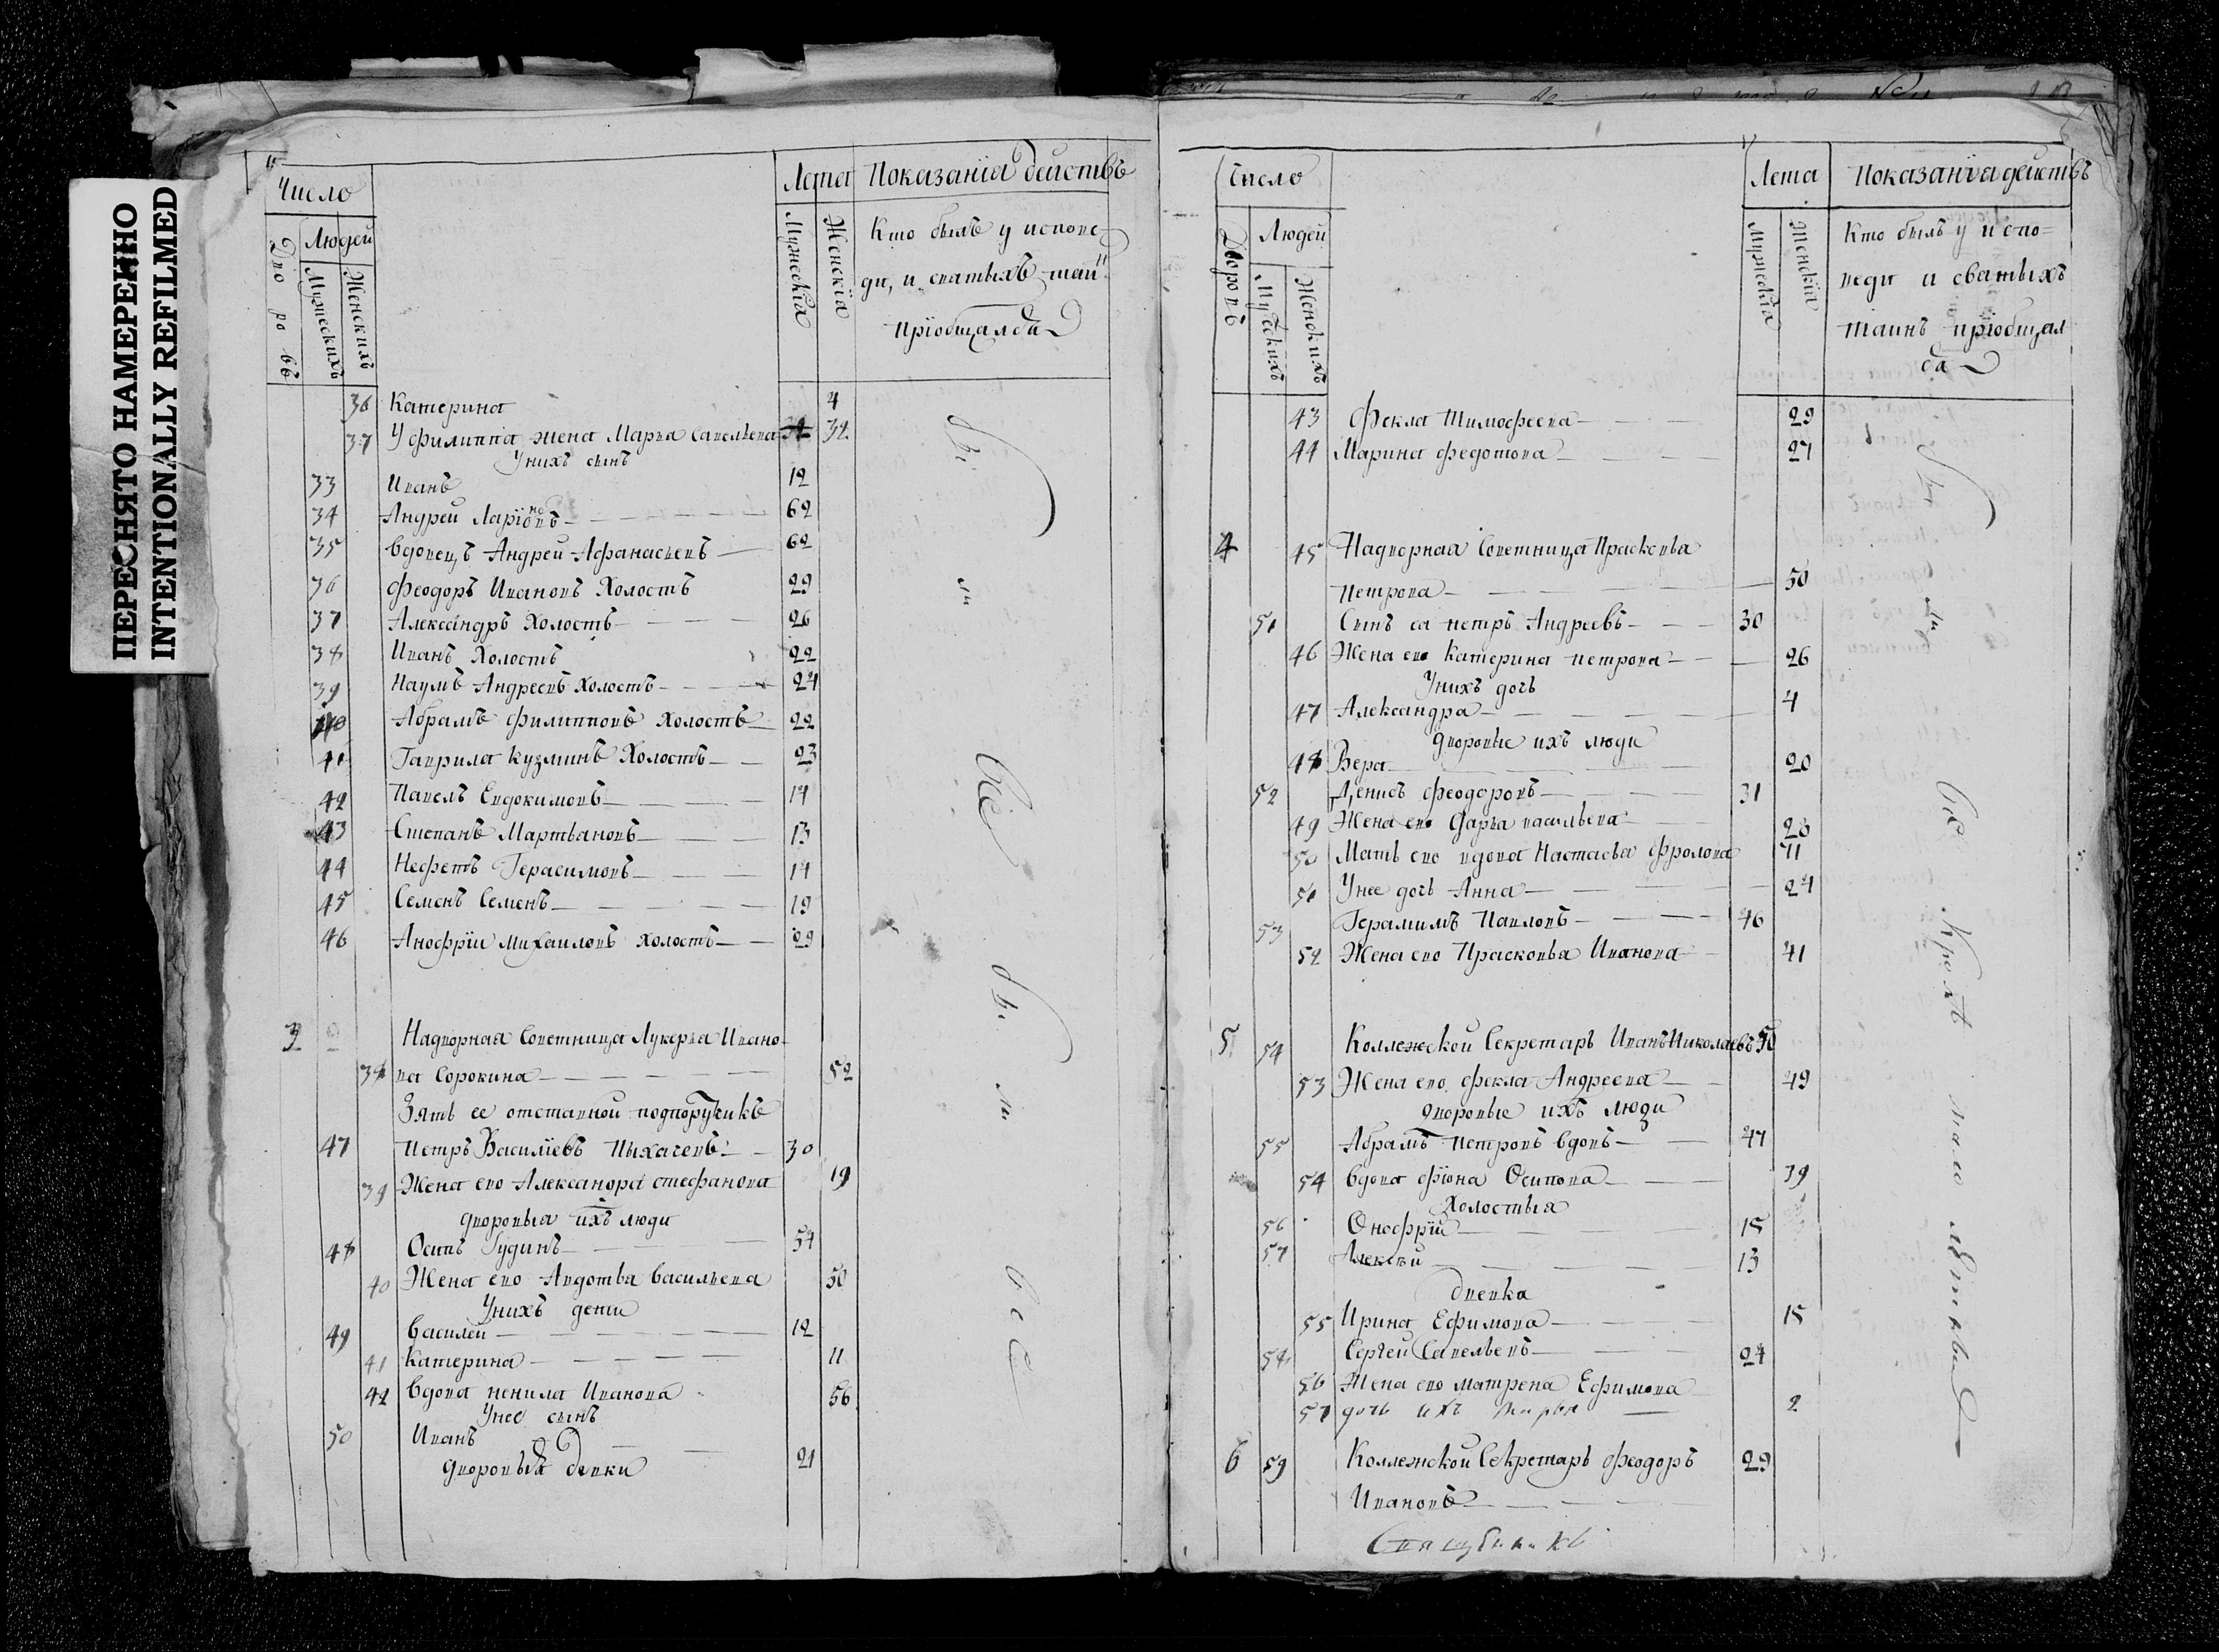 ПЕРЕСНЯТО НАМЕРЕННО
INTENTIONALLY REFILMED
Число
Лета
Показанїя действъ
Дворовъ
Людей
Мужескихъ
Женскихъ
Мужескїа
Женскїа
Кто былъ у испове-
ди, и святыхъ таи"
прїобщался
36 Катерина 4
37 У филиппа жена Марѳа Савельева 32 32
Унихъ сынъ
33 Иванъ 12
34 Андреи Ларїоновъ 62
35 вдовецъ Андреи Афанасьевъ 62
36 Феодоръ Ивановъ Холостъ 29
37 Александръ Холостъ 26
38 Иванъ Холостъ 22
39 Наумъ Андреевъ Холостъ 24
40 Абрамъ Филипповъ Холостъ 22
41 Гаврила Кузминъ Холостъ 23
42 Павелъ Евдокимовъ 14
43 Степанъ Мартьяновъ 13
44 Нефетъ Герасимовъ 14
45 Семенъ Семенъ 19
46 Анофрїи Михаиловъ Холостъ 29
3 Надворная Советница Лукерья Ивано-
38 ва Сорокина 52
Зять ее отставной подпоручикъ
47 Петръ Василїевъ Пыхачевъ 30
39 Жена ево Александра стефанова 19
дворовыя ихъ люди
48 Осипъ Гудинъ 54
40 Жена ево Авдотья Васильева 50
Унихъ дети
49 Василеи 12
41 Катерина 11
42 вдова ненила Иванова 56
Унее сынъ
50 Иванъ 21
дворовыя девки
были
все
были
все
Число
Лета
Показанїя действъ
Дворовъ
Людей
Мужскихъ
Женскихъ
Мужескїа
Женскїа
Кто былъ у испо=
веди и святыхъ
таинъ прїобщал
ся
43 Фекла Тимофеева 29
44 Марина Федотова 27
4 45 Надворная Советница Прасковья
Петрова 50
51 Сынъ ея петръ Андреевъ 30
46 Жена ево Катерина петрова 26
Унихъ дочь
47 Александра 4
дворовые ихъ люди
48 Вера 20
52 Денисъ Феодоровъ 31
49 Жена ево Дарья васильева 28
50 Мать ево вдова Настасья Фролова 71
51 Унее дочь Анна 24
53 Герамимъ Павловъ 46
52 Жена ево Прасковья Иванова 41
5 54 Коллежской Секретарь Иванъ Николаевъ 50
53 Жена ево Фекла Андреева 49
дворовые ихъ люди
55 Абрамъ Петровъ вдовъ 47
54 вдова фїона Осипова 39
Холостыя
56 Онофрїй 15
57 Алексѣи 13
девка
55 Ирина Ефимова 15
58 Сергеи Савельевъ 24
56 Жена ево матрена Ефимова
57 дочь ихъ Марья 2
6 59 Коллежской Секретарь Феодоръ 29
Ивановъ
были
все
Кромѣ
мало
лѣтных